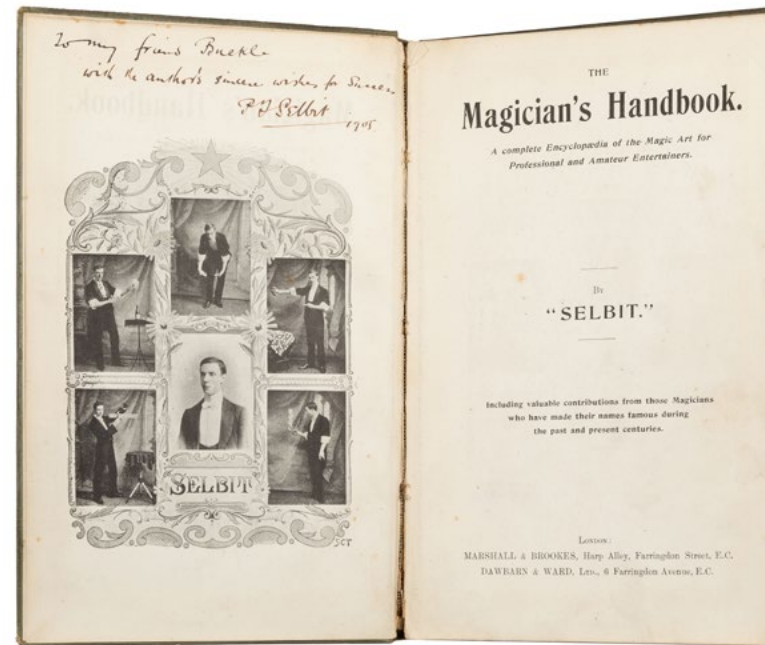 To my friend Buckle
with the author's sincere wishes for Success
P T Selbit
1905
SELBIT
SCT
THE
Magician's Handbook.
A complete Encyclopædia of the Magic Art for
Professional and Amateur Entertainers.
By
"SELBIT."
Including valuable contributions from those Magicians
who have made their names famous during
the past and present centuries.
London:
MARSHALL & BROOKES, Harp Alley, Farringdon Street, E.C.
DAWBARN & WARD, Ltd., 6 Farringdon Avenue, E.C.